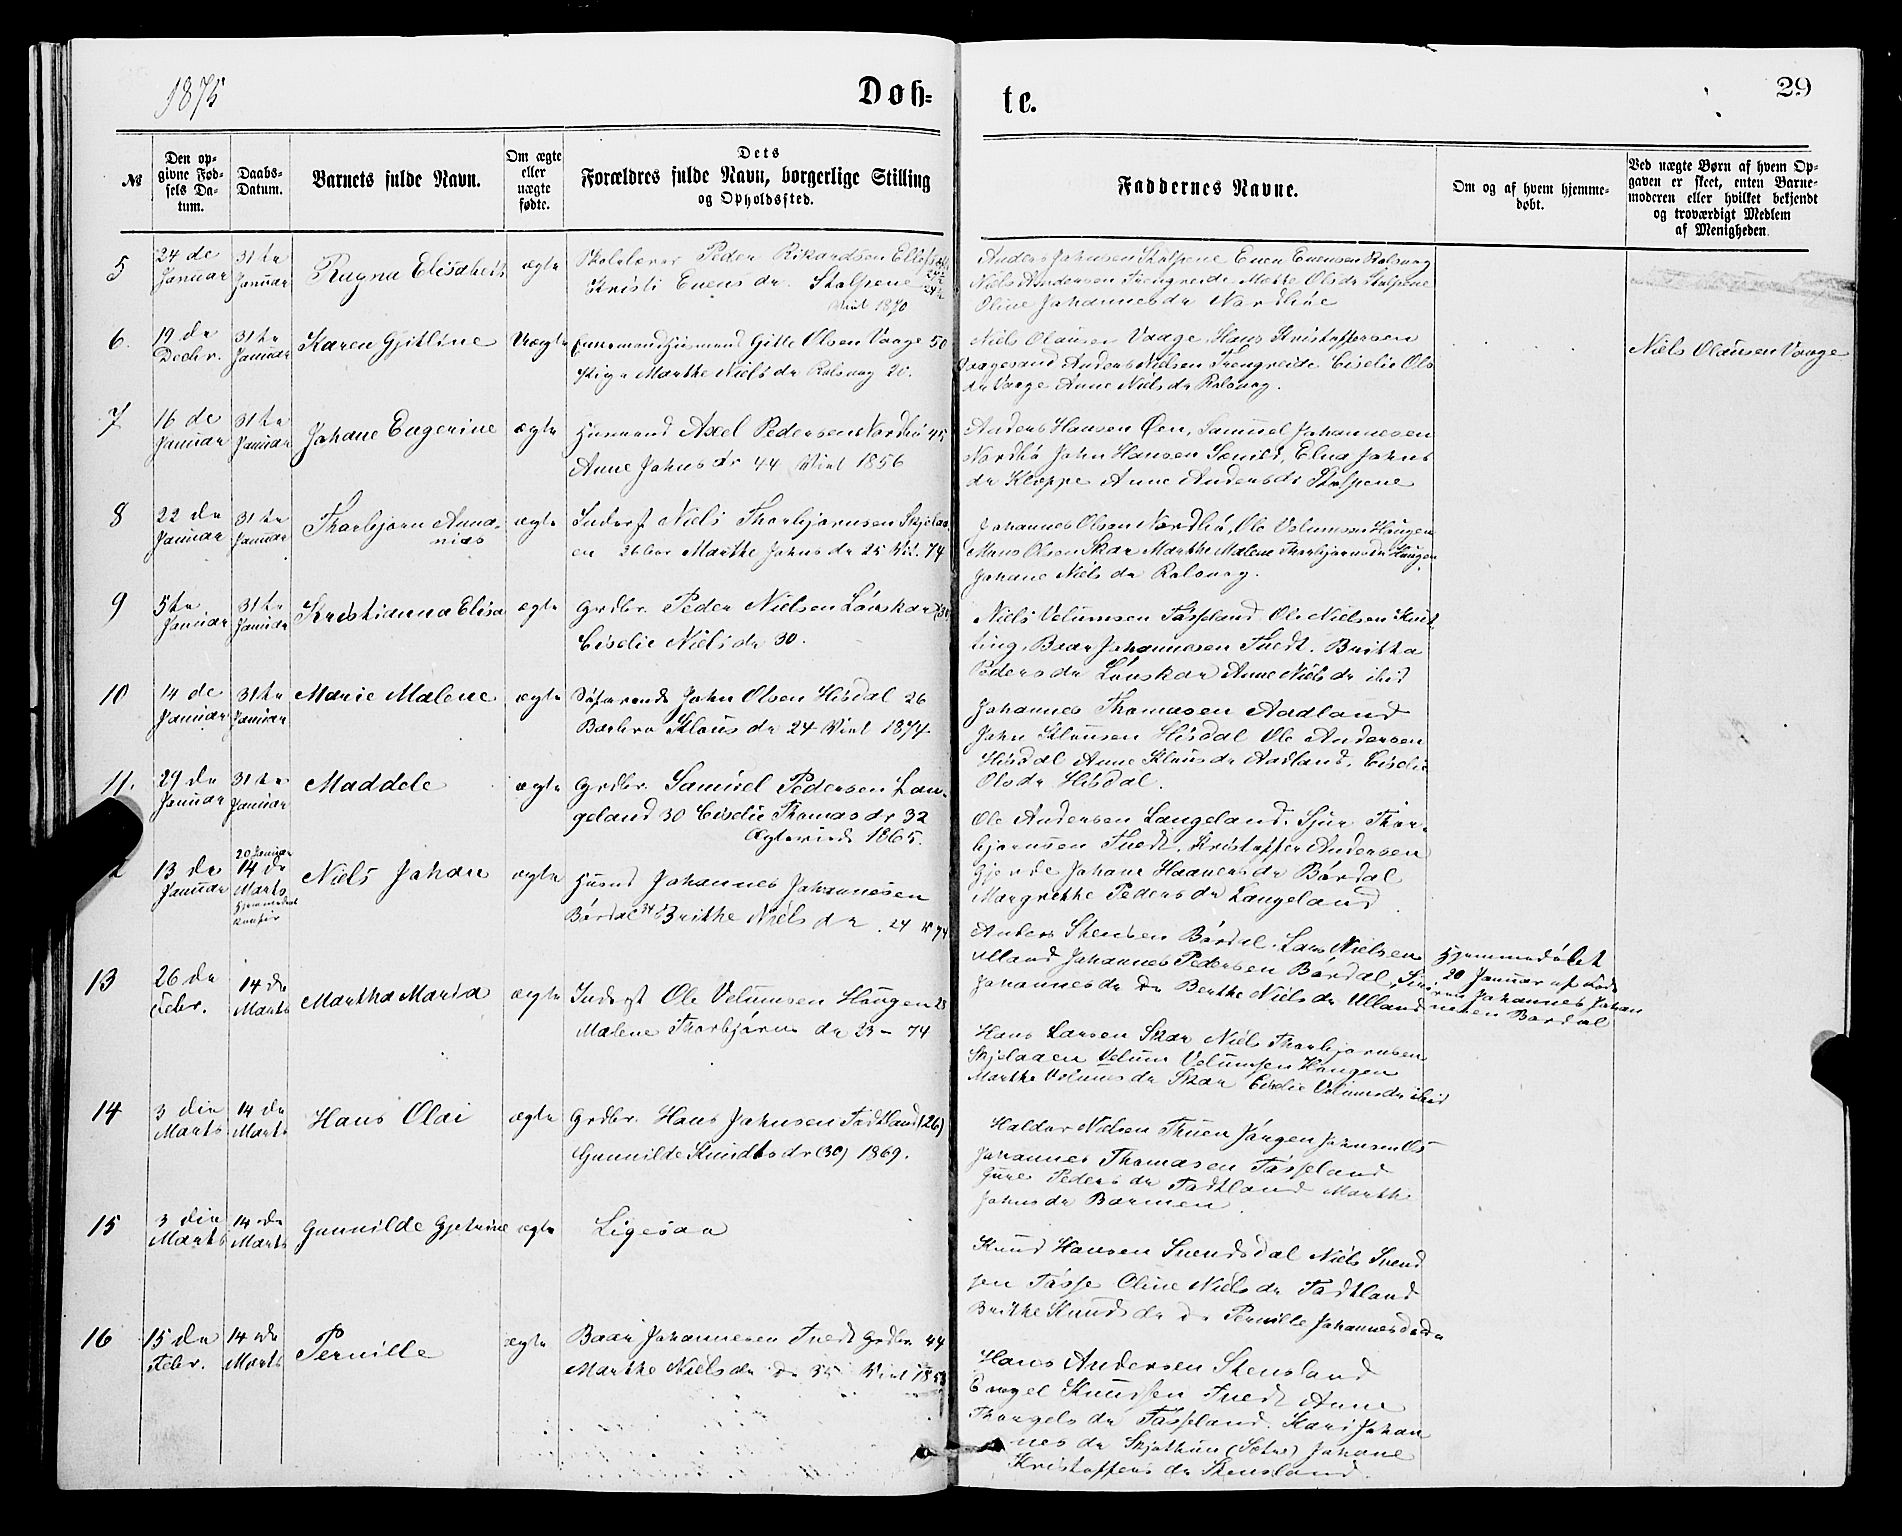 1875
Døb=
te.
29
№
Den op-
givne Fød-
sels Da-
tum.
Daabs-
Datum.
Barnets fulde Navn.
Om ægte
eller
uægte
fødte.
Dets
Forældres fulde Navn, borgerlige Stilling
og Opholdssted.
Faddernes Navne.
Om og af hvem hjemme-
døbt.
Ved uægte Børn af hvem Op-
gaven er skeet, enten Barne-
moderen eller hvilket bekjendt
og troværdigt Medlem
af Menigheden.
5
24 de
Januar
31 te
Januar
Ragna Elisabeth
ægte
Skolelærer Peder Rikardsen
Kristi Evens dr. Stolpene
Viet 1870
Anders Johnsen Stolpene Even Evensen Rolsvag
Niels Andersen Trengreide Mette Olsdr Stolpene
Oline Johannesdr Nordhøe
6.
19 de
Decbr.
31 te
Januar
Karen Gjitline
Uægte
Enkemand Husmand Gitle Olsen Vaage 50
Pige Marthe Niels dr Rolsvag 20.
Niels Olausen Vaage Hans Kristoffersen
Vaagesund Anders Nielsen Trengreide Cicelie Ols
dr Vaage Anne Niels dr Rolsvag.
Niels Olausen Vaage
7
16 de
Januar
31 te
Januar
Johane Eugenine
ægte
Husmand Axel Pedersen Nordhø 45
Anne Johns dr 44 Viet 1856
Anders Hansen Øen, Samuel Johannesen
Nordhø John Hansen Elna Johns
dr Kleppe Anne Anders dr Stolpene
8
22 de
Januar
31 te
Januar
Thorbjørn Anna-
nias
ægte
Inderst Niels Thorbjørnsen Skjelaa-
en 26 Aar Marthe Johns dr 25 Vi. 74
Johannes Olsen Nordhø, Ole Velumsen Haugen
Mons Olsen Skar Marthe Malene Thorbjørnsdr Haugen
Johane Niels dr Rolsvag.
9
5 te
Januar
31 te
Januar
Kristianna Elisa
ægte
Grdbr. Peder Nielsen Lønskar
Ciselie Niels dr 30.
Niels Velumsen Tøsseland Ole Nielsen
Baar Johannesen Tuedt. Britha
Peders dr Lønskar Anne Niels dr ibid
10
14 de
Januar
31 te
Januar
Marie Malene
ægte
Søfarende John Olsen Hisdal 26
Barbra Klaus dr 24 Viet 1874
Johannes Thomasen Aadland
John Klausen Hisdal Ole Andersen
Hisdal Anne Klaus dr Aadland, Ciselie
Ols dr Hisdal.
11.
29 de
Januar
31 te
Januar
Maddele
ægte
Grdbr. Samuel Pedersen Lan-
geland 30 Ciselie Thomas dr 32
Ægteviede 1865.
Ole Andersen Langeland. Sjur Thor-
bjørnsen Tuedt, Kristoffer Andersen
Gjerde Johane Haaversdr Børdal
Margrethe Peders dr Langeland
13 de
Januar
20 Januar
14 de
Marts
Hjemmedøbt
Niels Johan
ægte
Husmd Johannes Johannesen
Børdal 34 Brithe Niels dr. 24 V 74
Anders Stensen Børdal. Lars Nielsen
Ulland Johannes Pedersen Børdal,
Johannes dr do Berthe Niels dr Ulland
Hjemmedøbt
20 Januar af
Johannes Johan
nesen Børdal
13
26 de
Febr.
14 de
Marts
Martha Maria
ægte
Inderst Ole Velumsen Haugen 23
Malene Thorbjørns dr 23 - 74
Hans Larsen Skar Niels Thorbjørnsen
Skjelaaen Velum Velumsen Haugen
Marthe Velums dr Skar Ciselie Velumsdr ibid
14
3 die
Marts
14 de
Marts
Hans Olai
ægte
Grdbr. Hans Johnsen Tadtland (26)
Gunnilde Knudts dr (30) 1869.
Haldor Nielsen Thuen Jørgen
Johannes Thomasen Tøsseland
Peders dr Tadtland Marthe
Johns dr Barmen
15
3 die
Marts
14 de
Marts
Gunnilde Gjetrine
ægte
Ligesaa
Knud Hansen Svendsdal Niels Svend
sen Tøsse Oline Niels dr Tadtland
Brithe Knuds dr do Pernille Johannesdr do
16
15 de
Febr.
14 de
Marts
Pernille
ægte
Baar Johannesen Tuedt Grdbr. 44
Marthe Niels dr do 35 Viet
Hans Andersen Stensland
Engel Knudsen Tuedt Anne
Thorgels dr Tøsseland. Kari Johan
nes dr Skjethun (Sæbø) Johane
Kristoffers dr Stensland.